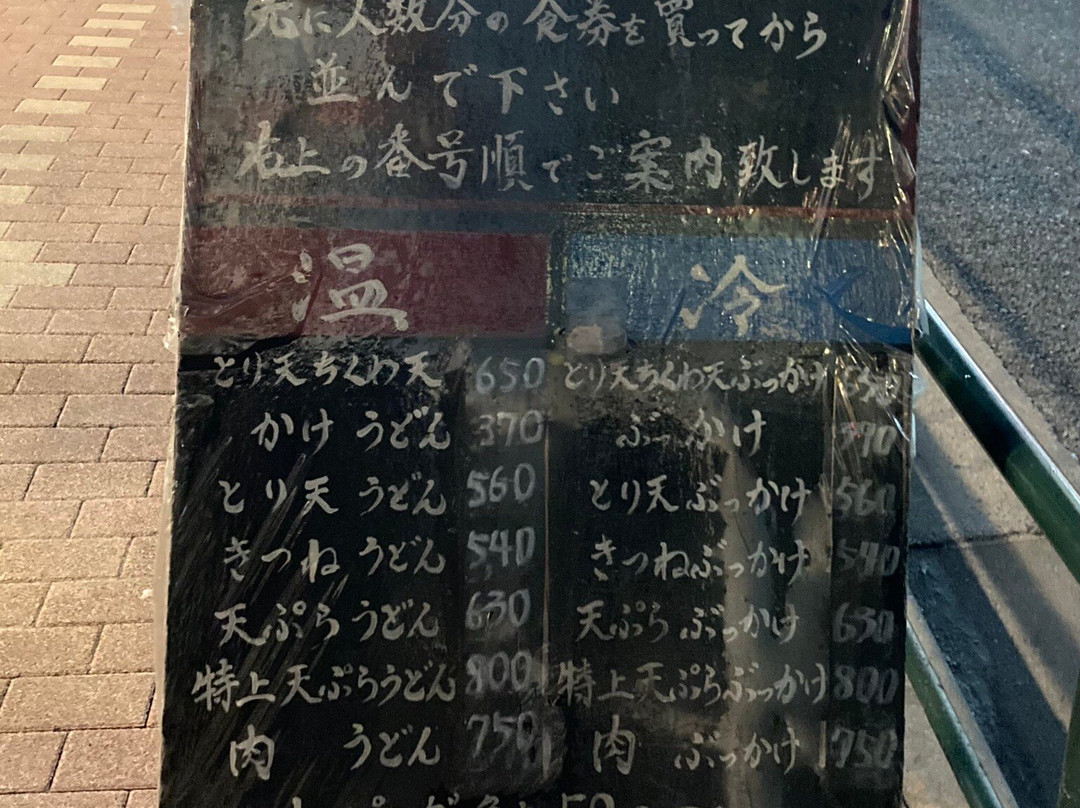 先に人数分の食券を買ってから
並んで下さい
右上の番号順でご案内致します
温 冷
とり天ちくわ天 650 とり天ちくわ天ぶっかけ
かけうどん 370 ぶっかけ 370
とり天うどん 560 とり天ぶっかけ 560
きつねうどん 540 きつねぶっかけ 540
天ぷらうどん 630 天ぷらぶっかけ 630
特上天ぷらうどん 800 特上天ぷらぶっかけ 800
肉うどん 750 肉ぶっかけ 750